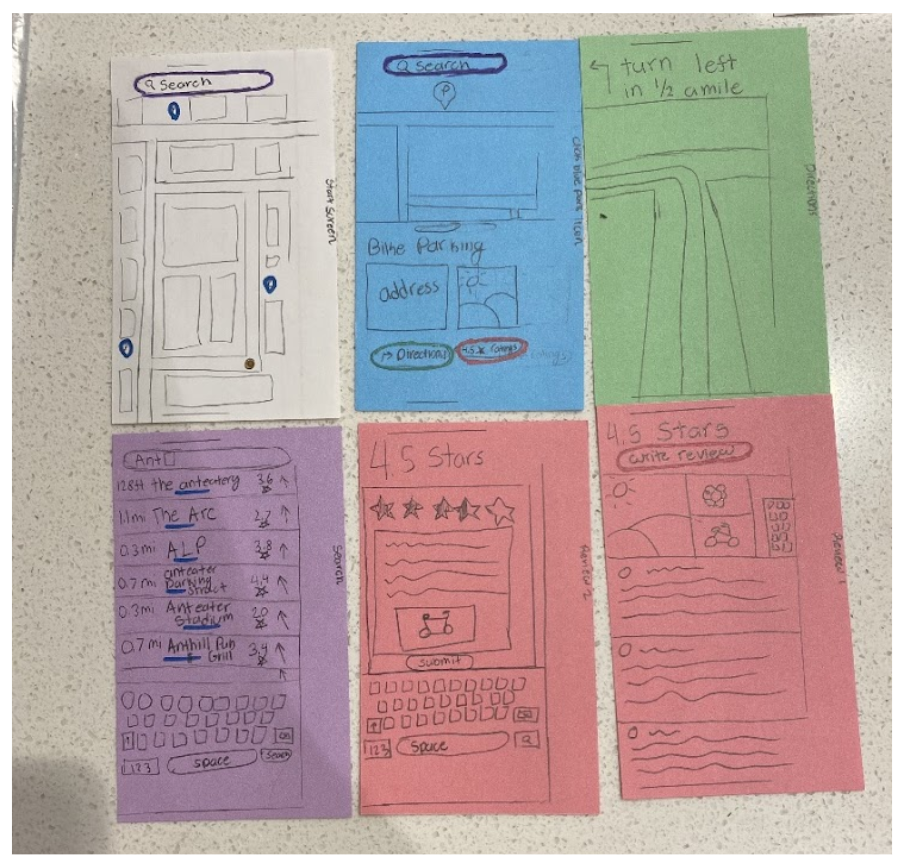 Search
Start Screen
Search
P
Bike Parking
address
Directions
4.5 ratings
click blue park icon
turn left
in 1/2 a mile
Directions
Ant
128ft the anteatery 3.6
1.1mi The Arc 2.7
0.3mi ALP 3.8
0.7mi anteater Parking Struct 4.4
0.3mi Anteater Stadium 2.0
0.7mi Anthill Pub Grill 3.4
123 space search
Search
4.5 Stars
submit
123 space
Review 2
4.5 Stars
write review
Review 1